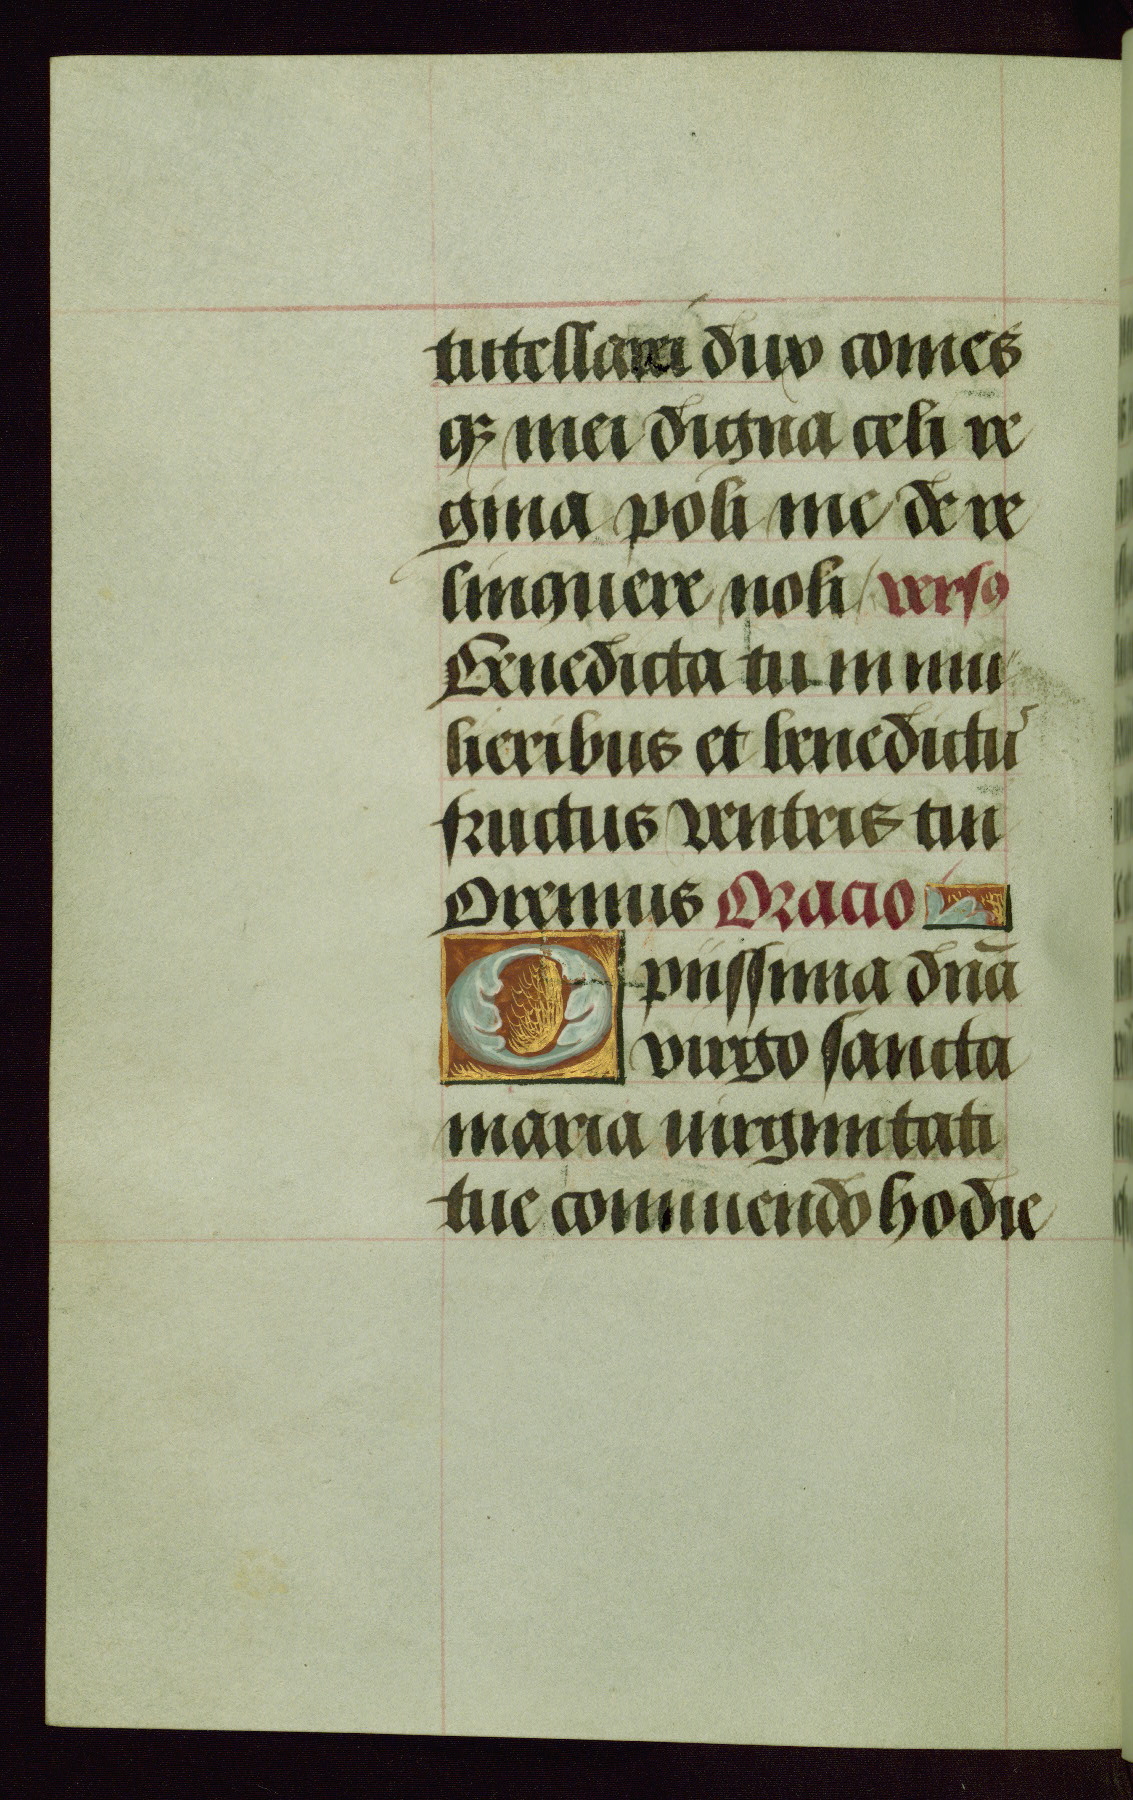 tutella rei dux comes
qꝫ mei digna celi re
gina poli me dere
linquere noli versꝯ
Benedicta tu in mu
lieribus et benedictu᷒
fructus ventris tui
Oremus Oracio
O piissima dn̄a
virgo sancta
maria uirginitati
tue commendo hodie